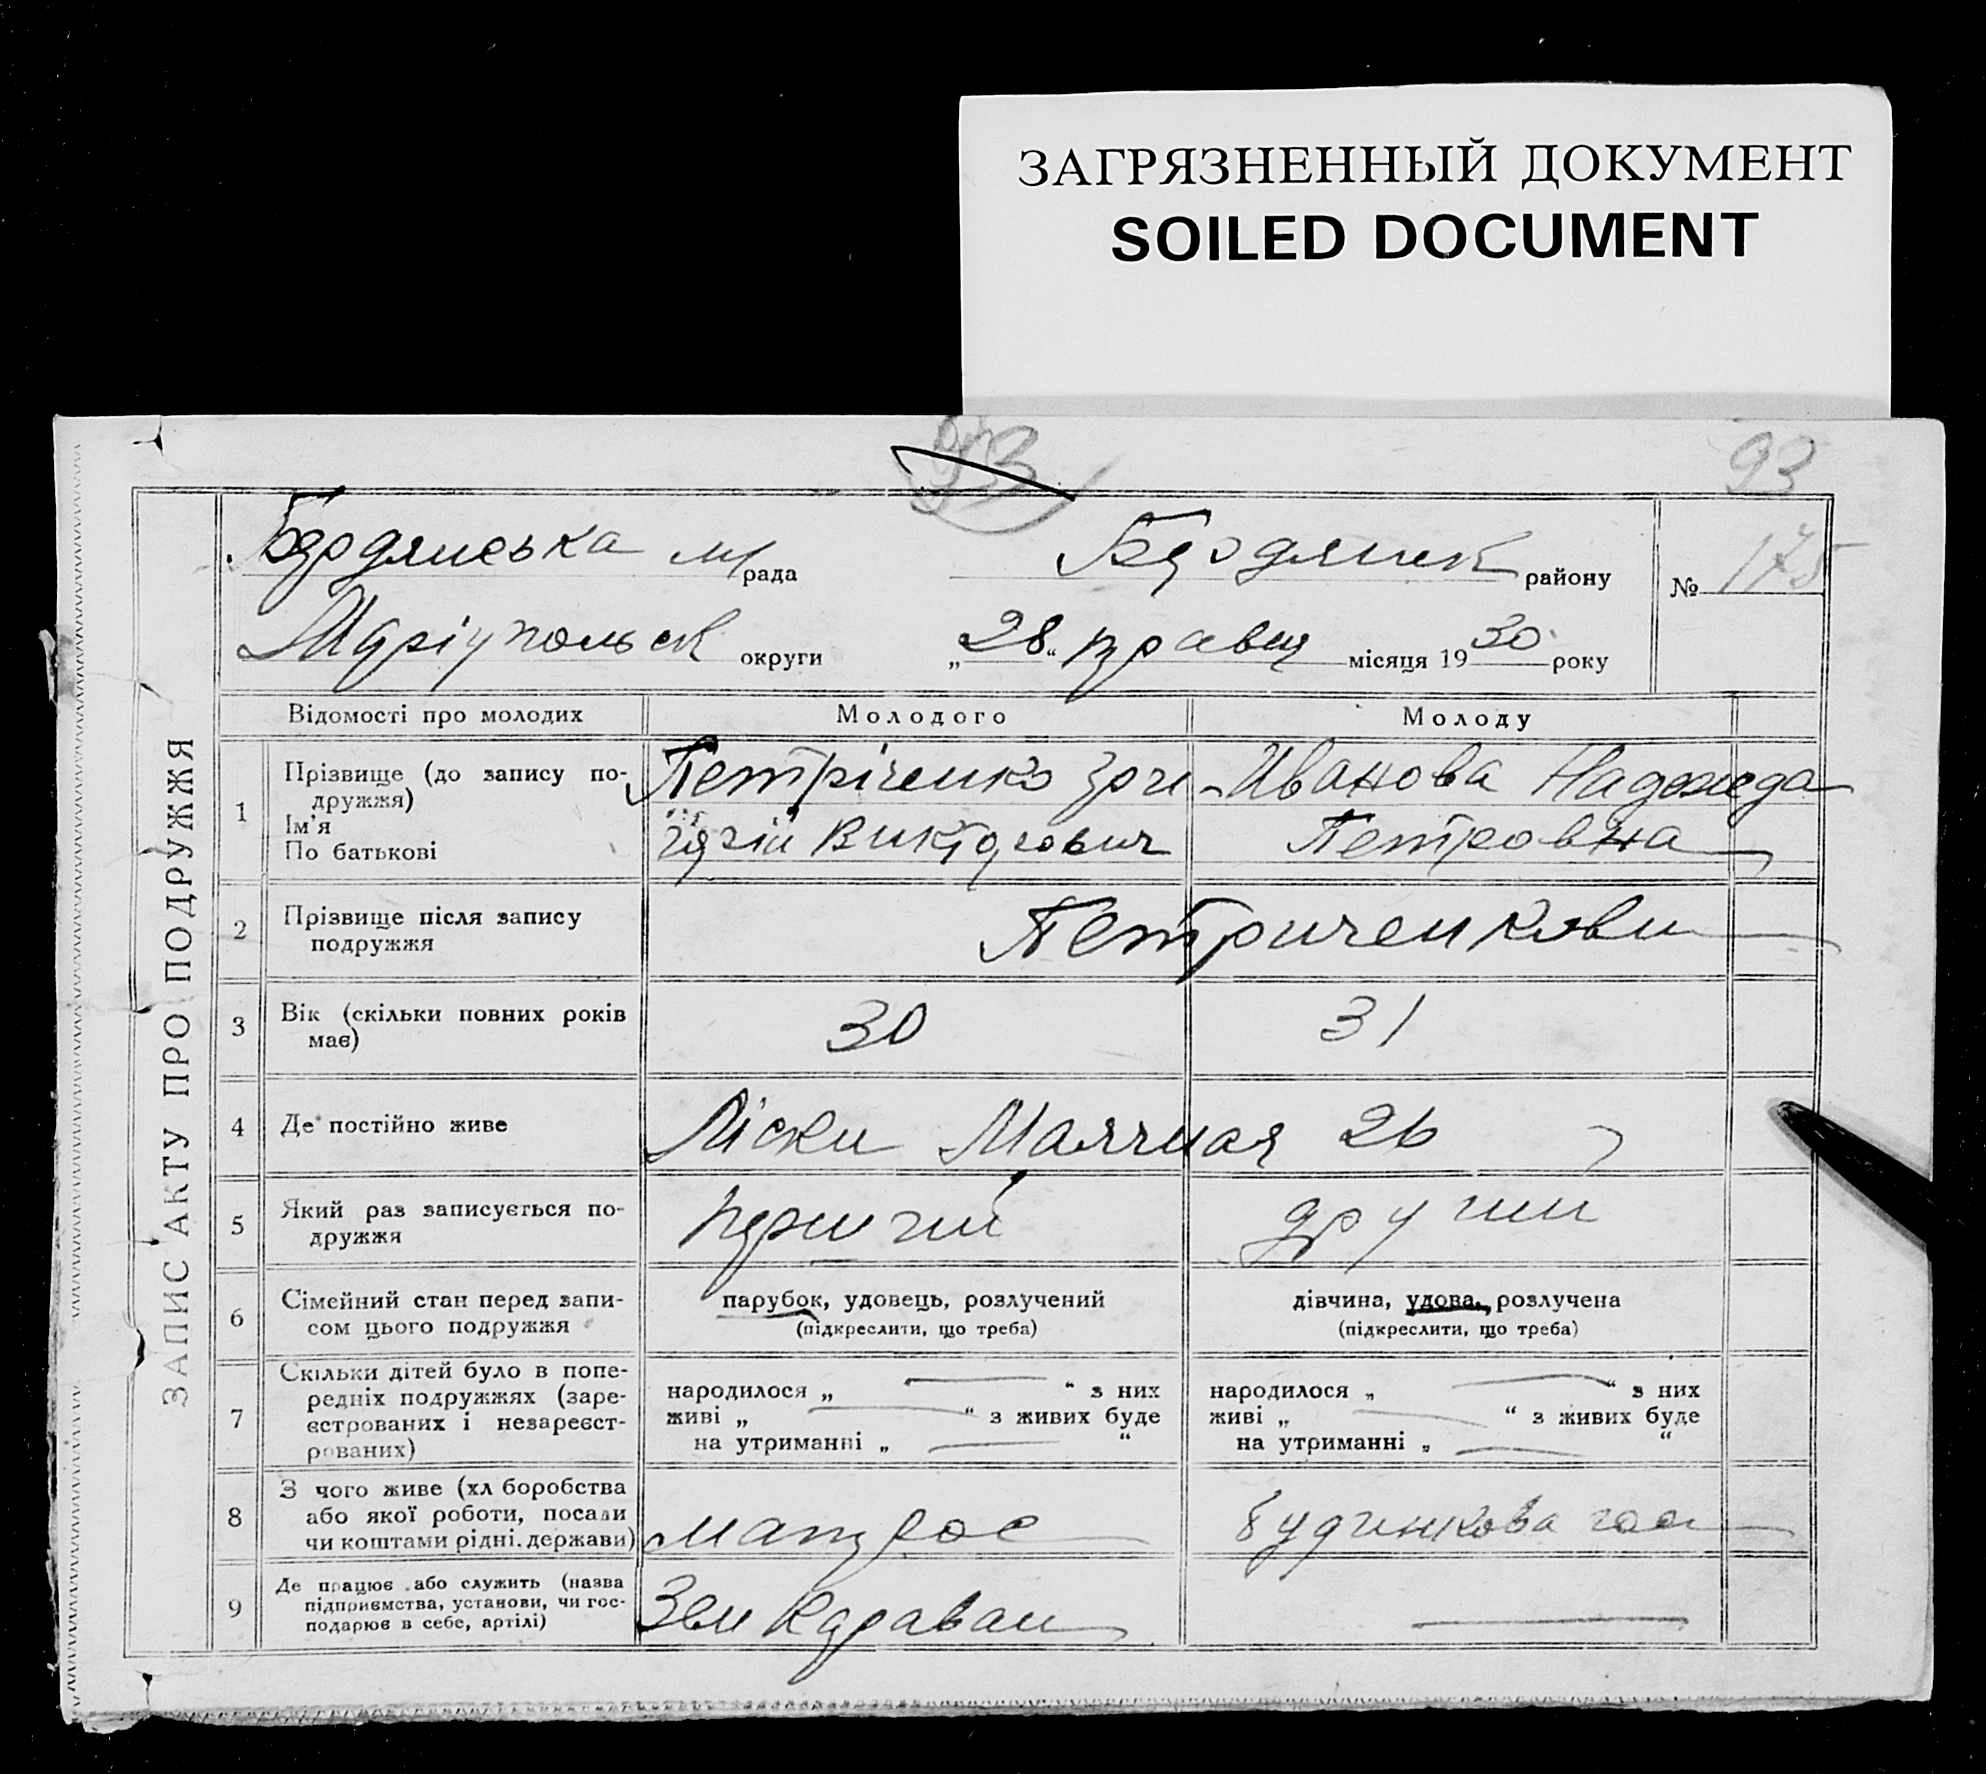 ЗАГРЯЗНЕННЫЙ ДОКУМЕНТ
SOILED DOCUMENT
93
93
Бердянська м/рада Бердянськ району № 175
Маріупольськ округи „28“ травня місяця 1930 року
ЗАПИС АКТУ ПРО ПОДРУЖЖЯ
Відомості про молодих Молодого Молоду
1 Прізвище (до запису по-
дружжя)
Ім'я
По батькові
Петріченко Гри-
горій Викторович
Иванова Надежда
Петровна
2 Прізвище після запису
подружжя
Петриченкови
3 Вік (скільки повних років
має)
30 31
4 Де постійно живе Ліски Маячная 26
5 Який раз записується по-
дружжя
перший другий
6 Сімейний стан перед запи-
сом цього подружжя
парубок, удовець, розлучений
(підкреслити, що треба)
дівчина, удова, розлучена
(підкреслити, що треба)
7 Скільки дітей було в попе-
редніх подружжях (заре-
єстрованих і незареєст-
рованих)
народилося „ — “ з них
живі „ — “ з живих буде
на утриманні „ — “
народилося „ — “ з них
живі „ — “ з живих буде
на утриманні „ — “
8 З чого живе (хліборобства
або якої роботи, посади
чи коштами рідні, держави)
матрос
будинкова
9 Де працює або служить (назва
підприємства, установи, чи гос-
подарює в себе, артілі)
Караван —